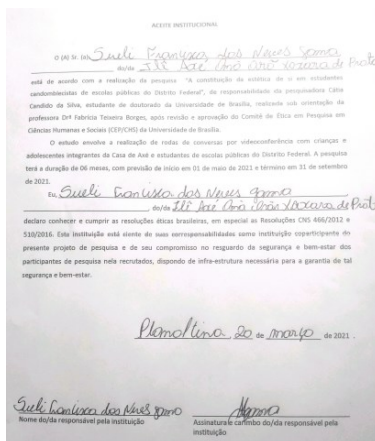 ACEITE INSTITUCIONAL
O (A) Sr. (a). Sueli Francisca das Neves Gama
do/da Ilê Axé Oxorá de Prata
está de acordo com a realização da pesquisa "A constituição da estética de si em estudantes
candomblecistas de escolas públicas do Distrito Federal", da responsabilidade da pesquisadora Cátia
Candido da Silva, estudante de doutorado da Universidade de Brasília, realizada sob orientação da
professora Drª Fabrícia Teixeira Borges, após revisão e aprovação do Comitê de Ética em Pesquisa em
Ciências Humanas e Sociais (CEP/CHS) da Universidade de Brasília.
O estudo envolve a realização de rodas de conversas por videoconferência com crianças e
adolescentes integrantes da Casa de Axé e estudantes de escolas públicas do Distrito Federal. A pesquisa
terá a duração de 06 meses, com previsão de início em 01 de maio de 2021 e término em 31 de setembro
de 2021.
Eu, Sueli Francisca das Neves Gama
do/da Ilê Axé
declaro conhecer e cumprir as resoluções éticas brasileiras, em especial as Resoluções CNS 466/2012 e
510/2016. Esta instituição está ciente de suas corresponsabilidades como instituição coparticipante do
presente projeto de pesquisa e de seu compromisso no resguardo da segurança e bem-estar dos
participantes de pesquisa nela recrutados, dispondo de infra-estrutura necessária para a garantia de tal
segurança e bem-estar.
Planaltina, 20 de março de 2021.
Sueli Francisca das Neves Gama
Nome do/da responsável pela instituição
Assinatura e carimbo do/da responsável pela
instituição